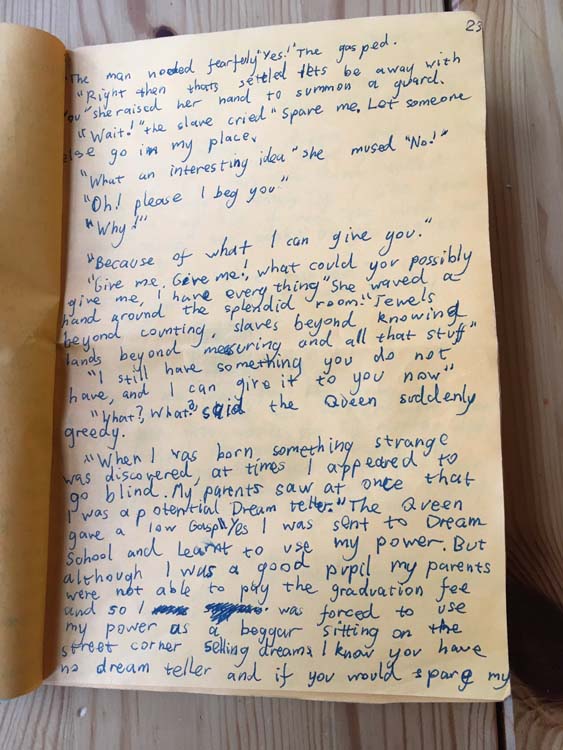 23
"The man nodded fearfully "Yes!" The gasped.
"Right then thats settled lets be away with
you" she raised her hand to summon a guard.
"Wait!" the slave cried "Spare me. Let someone
else go in my place.
"What an interesting idea" she mused "No!"
"Oh! please I beg you"
"Why!"
"Because of what I can give you."
"Give me. Give me!, what could you possibly
give me, I have everything" She waved a
hand around the splendid room. "Jewels
beyond counting, slaves beyond knowing
lands beyond measuring and all that stuff"
"I still have something you do not
have, and I can give it to you now"
"What?, What?, said the Queen suddenly
greedy.
"When I was born something strange
was discovered, at times I appeared to
go blind. My parents saw at once that
I was a potential Dream teller." The Queen
gave a low Gasp "Yes I was sent to Dream
School and learnt to use my power. But
although I was a good pupil my parents
were not able to pay the graduation fee
and so I was forced to use
my power as a beggar sitting on the
street corner selling dreams. I know you have
no dream teller and if you would spare my